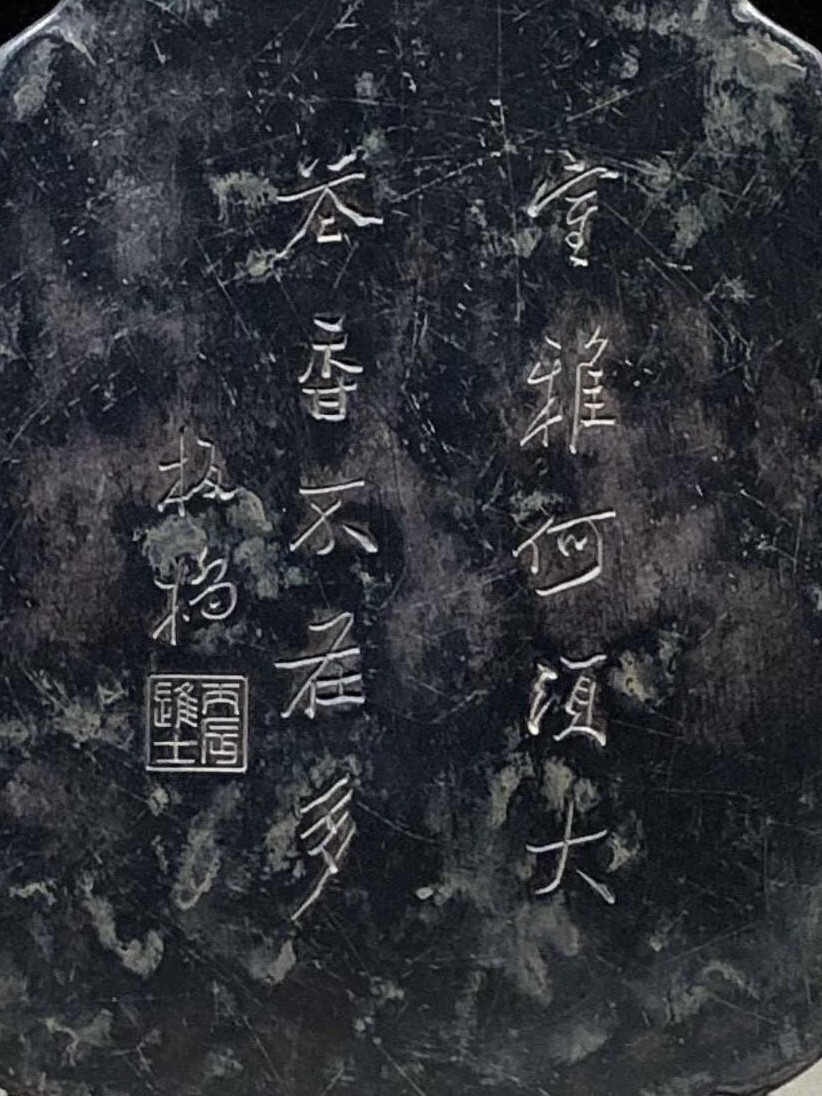 室雅何須大
花香不在多
板橋
丙辰進士